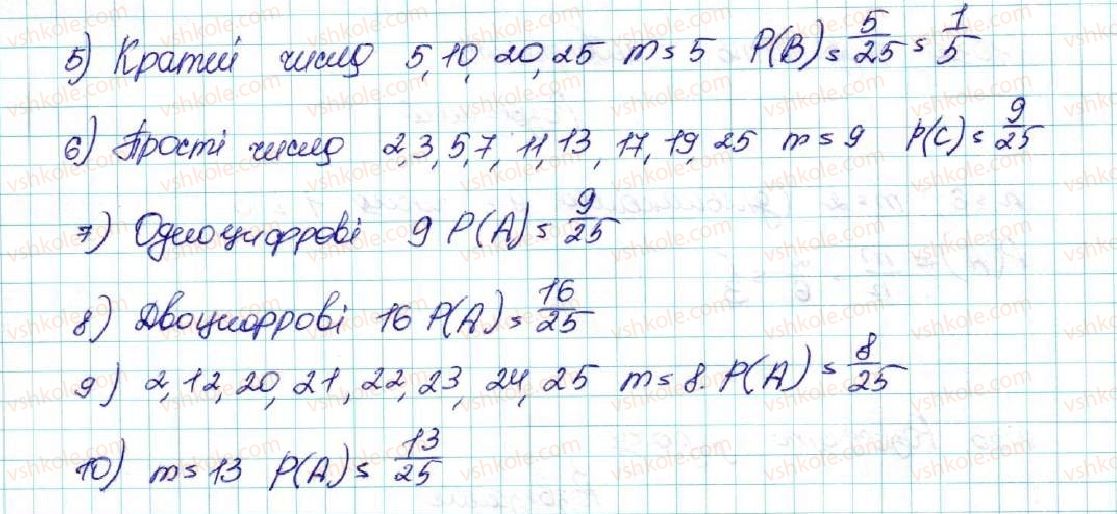 5) Кратні числа 5, 10, 20, 25 m = 5 P(B) = 5/25 = 1/5
6) Прості числа 2, 3, 5, 7, 11, 13, 17, 19, 25 m = 9 P(C) = 9/25
7) Одноцифрові 9 P(A) = 9/25
8) Двоцифрові 16 P(A) = 16/25
9) 2, 12, 20, 21, 22, 23, 24, 25 m = 8. P(A) = 8/25
10) m = 13 P(A) = 13/25
vshkole.com